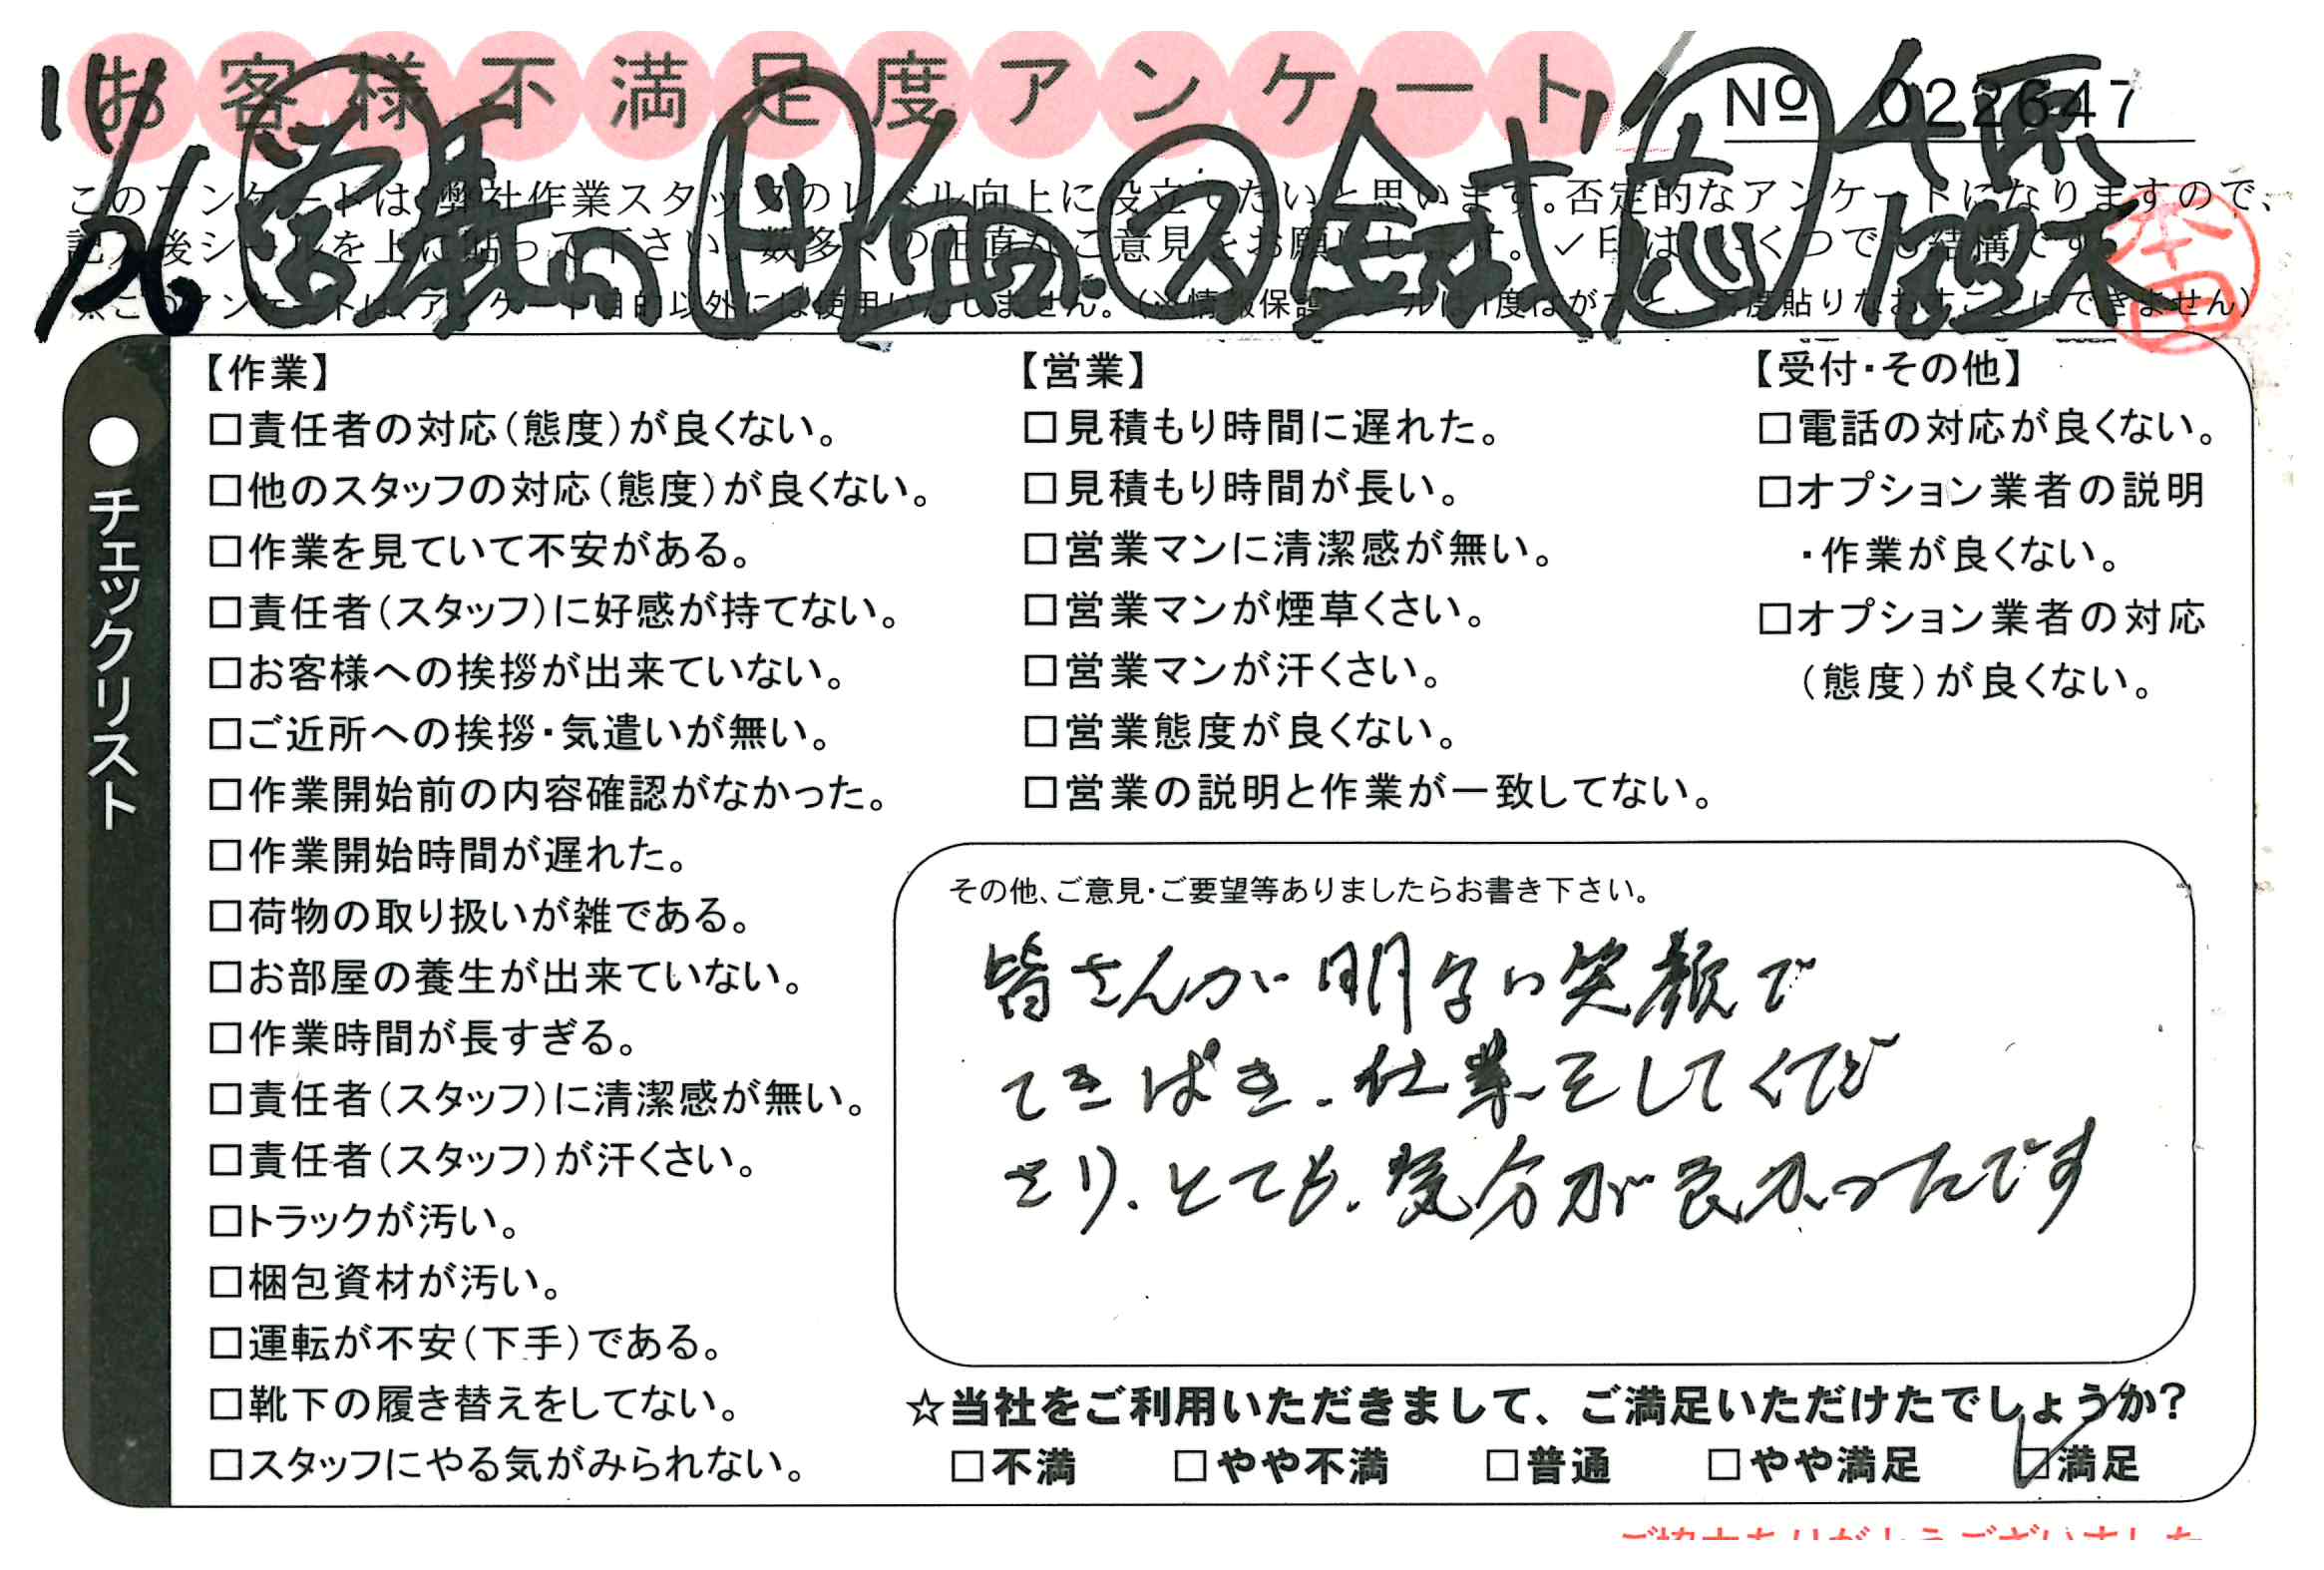 お客様不満足度アンケート
№ 022647
このアンケートは、弊社作業スタッフのレベル向上に役立てたいと思います。否定的なアンケートになりますので、
記入後シールを上に貼って下さい。数多くの正直なご意見をお願いします。✓印はいくつでも結構です。
※このアンケートは、アンケート目的以外には使用いたしません。(※情報保護シールは1度はがすと、再度貼りなおすことはできません)
11/26
本田
●チェックリスト
【作業】
□責任者の対応(態度)が良くない。
□他のスタッフの対応(態度)が良くない。
□作業を見ていて不安がある。
□責任者(スタッフ)に好感が持てない。
□お客様への挨拶が出来ていない。
□ご近所への挨拶・気遣いが無い。
□作業開始前の内容確認がなかった。
□作業開始時間が遅れた。
□荷物の取り扱いが雑である。
□お部屋の養生が出来ていない。
□作業時間が長すぎる。
□責任者(スタッフ)に清潔感が無い。
□責任者(スタッフ)が汗くさい。
□トラックが汚い。
□梱包資材が汚い。
□運転が不安(下手)である。
□靴下の履き替えをしてない。
□スタッフにやる気がみられない。
【営業】
□見積もり時間に遅れた。
□見積もり時間が長い。
□営業マンに清潔感が無い。
□営業マンが煙草くさい。
□営業マンが汗くさい。
□営業態度が良くない。
□営業の説明と作業が一致してない。
【受付・その他】
□電話の対応が良くない。
□オプション業者の説明
・作業が良くない。
□オプション業者の対応
(態度)が良くない。
その他、ご意見・ご要望等ありましたらお書き下さい。
皆さんが明るい笑顔で
てきぱき、仕業をしてくだ
さり、とても、気分が良かったです
☆当社をご利用いただきまして、ご満足いただけたでしょうか?
□不満 □やや不満 □普通 □やや満足 ☑満足
ご協力ありがとうございました